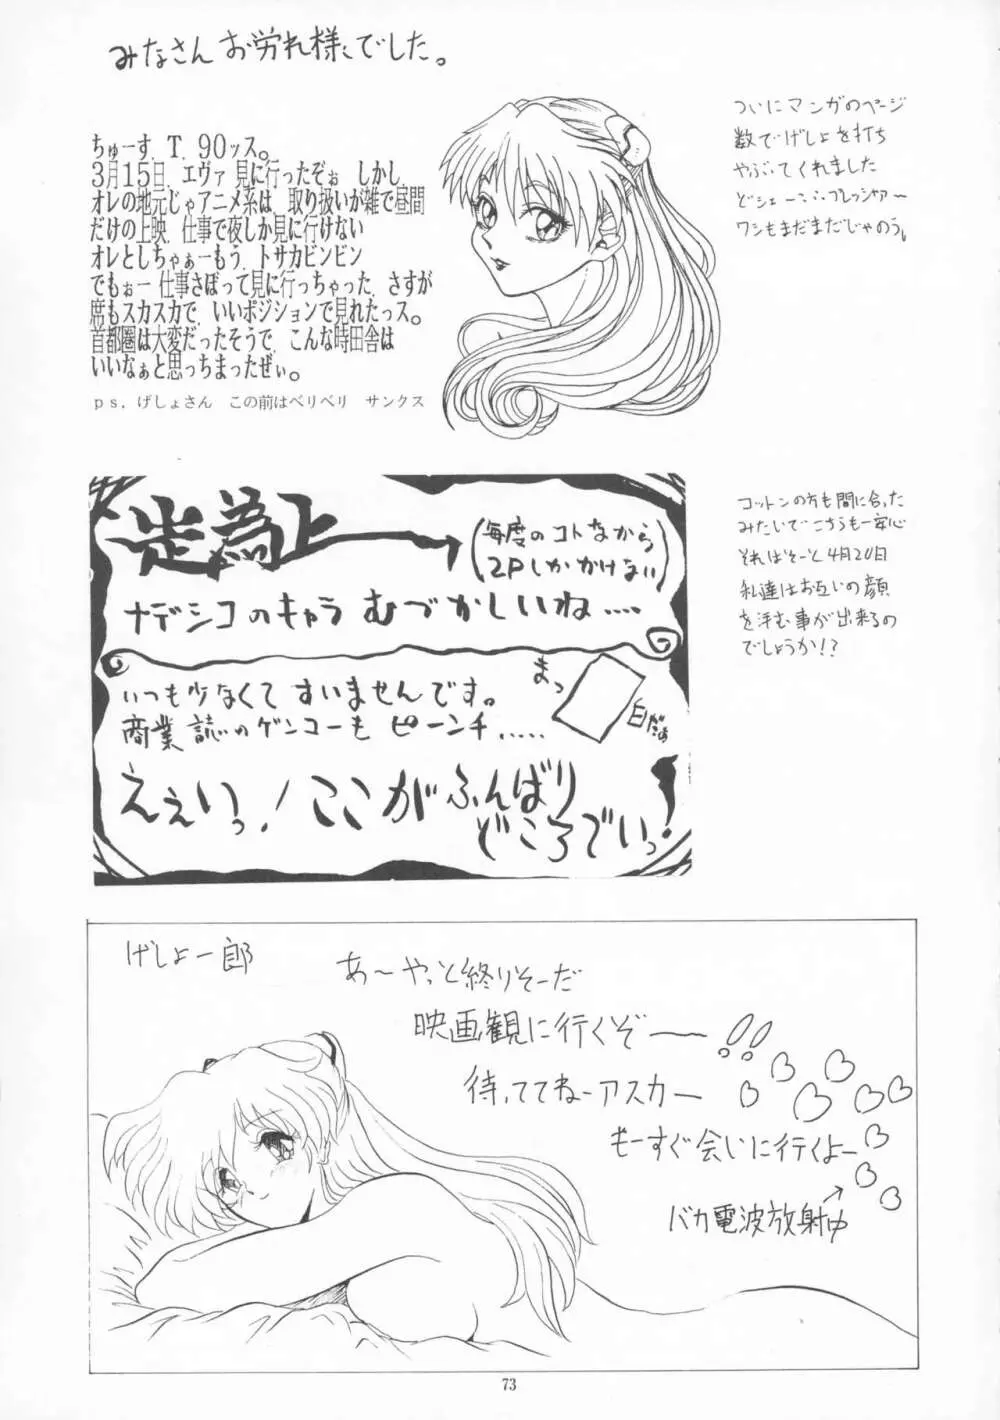 みなさんお労れ様でした。
ちゅーす、T．90ッス。
3月15日、エヴァ 見に行ったぞぉ しかし、
オレの地元じゃアニメ系は、取り扱いが雑で昼間
だけの上映、仕事で夜しか見に行けない
オレとしちゃぁーもう、トサカビンビン
でもぉー 仕事さぼって見に行っちゃった、さすが
席もスカスカで、いいポジションで見れたっス。
首都圏は大変だったそうで、こんな時田舎は
いいなぁと思っちまったぜぃ。
ps．げしょさん　この前はベリベリ　サンクス
ついにマンガのページ
数でげしょを打ち
やぶってくれました
どシェー∴∴プレッシャァ〜
ワシもまだまだじゃのう。
走為上
(毎度のコトながら
2Pしかかけない)
ナデシコのキャラ むづかしいね‥‥
いつも少なくて すいませんです。
商業誌のゲンコーも ピーンチ‥‥‥
まっ
白だぁ
ええいっ！ここがふんばり
どころでいっ！
コットンの方も間に合った
みたいでこちらも一安心
それはそーと4月20日
私達はお互いの顔
を拝む事が出来るの
でしょうか!?
げしょ一郎
あ〜やっと終りそーだ
映画観に行くぞ──!!
待っててねーアスカー
もーすぐ会いに行くよー
バカ電波放射中
73